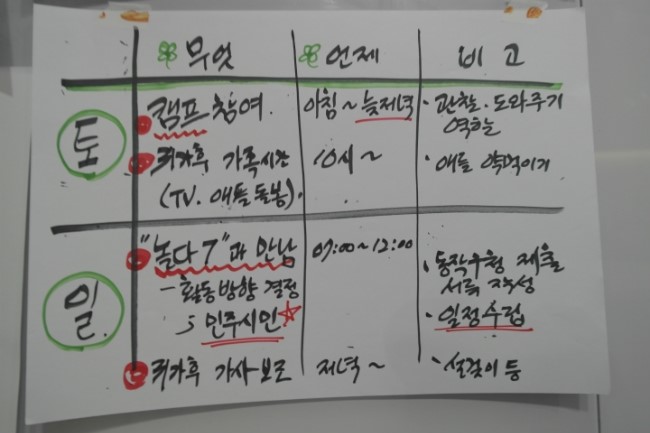 무엇 언제 비고
토
캠프 참여. 아침~늦저녁 · 관찰. 도와주기
역할
귀가후 가족시간 10시~ · 애들 약먹이기
(TV. 애들돌봄).
일.
"놀다 7"과 만남 09:00~12:00 · 동작구청 제출
- 활동방향 결정 서류 작성
민주시민☆ · 일정수립
귀가후 가사 저녁~ · 설겆이 등